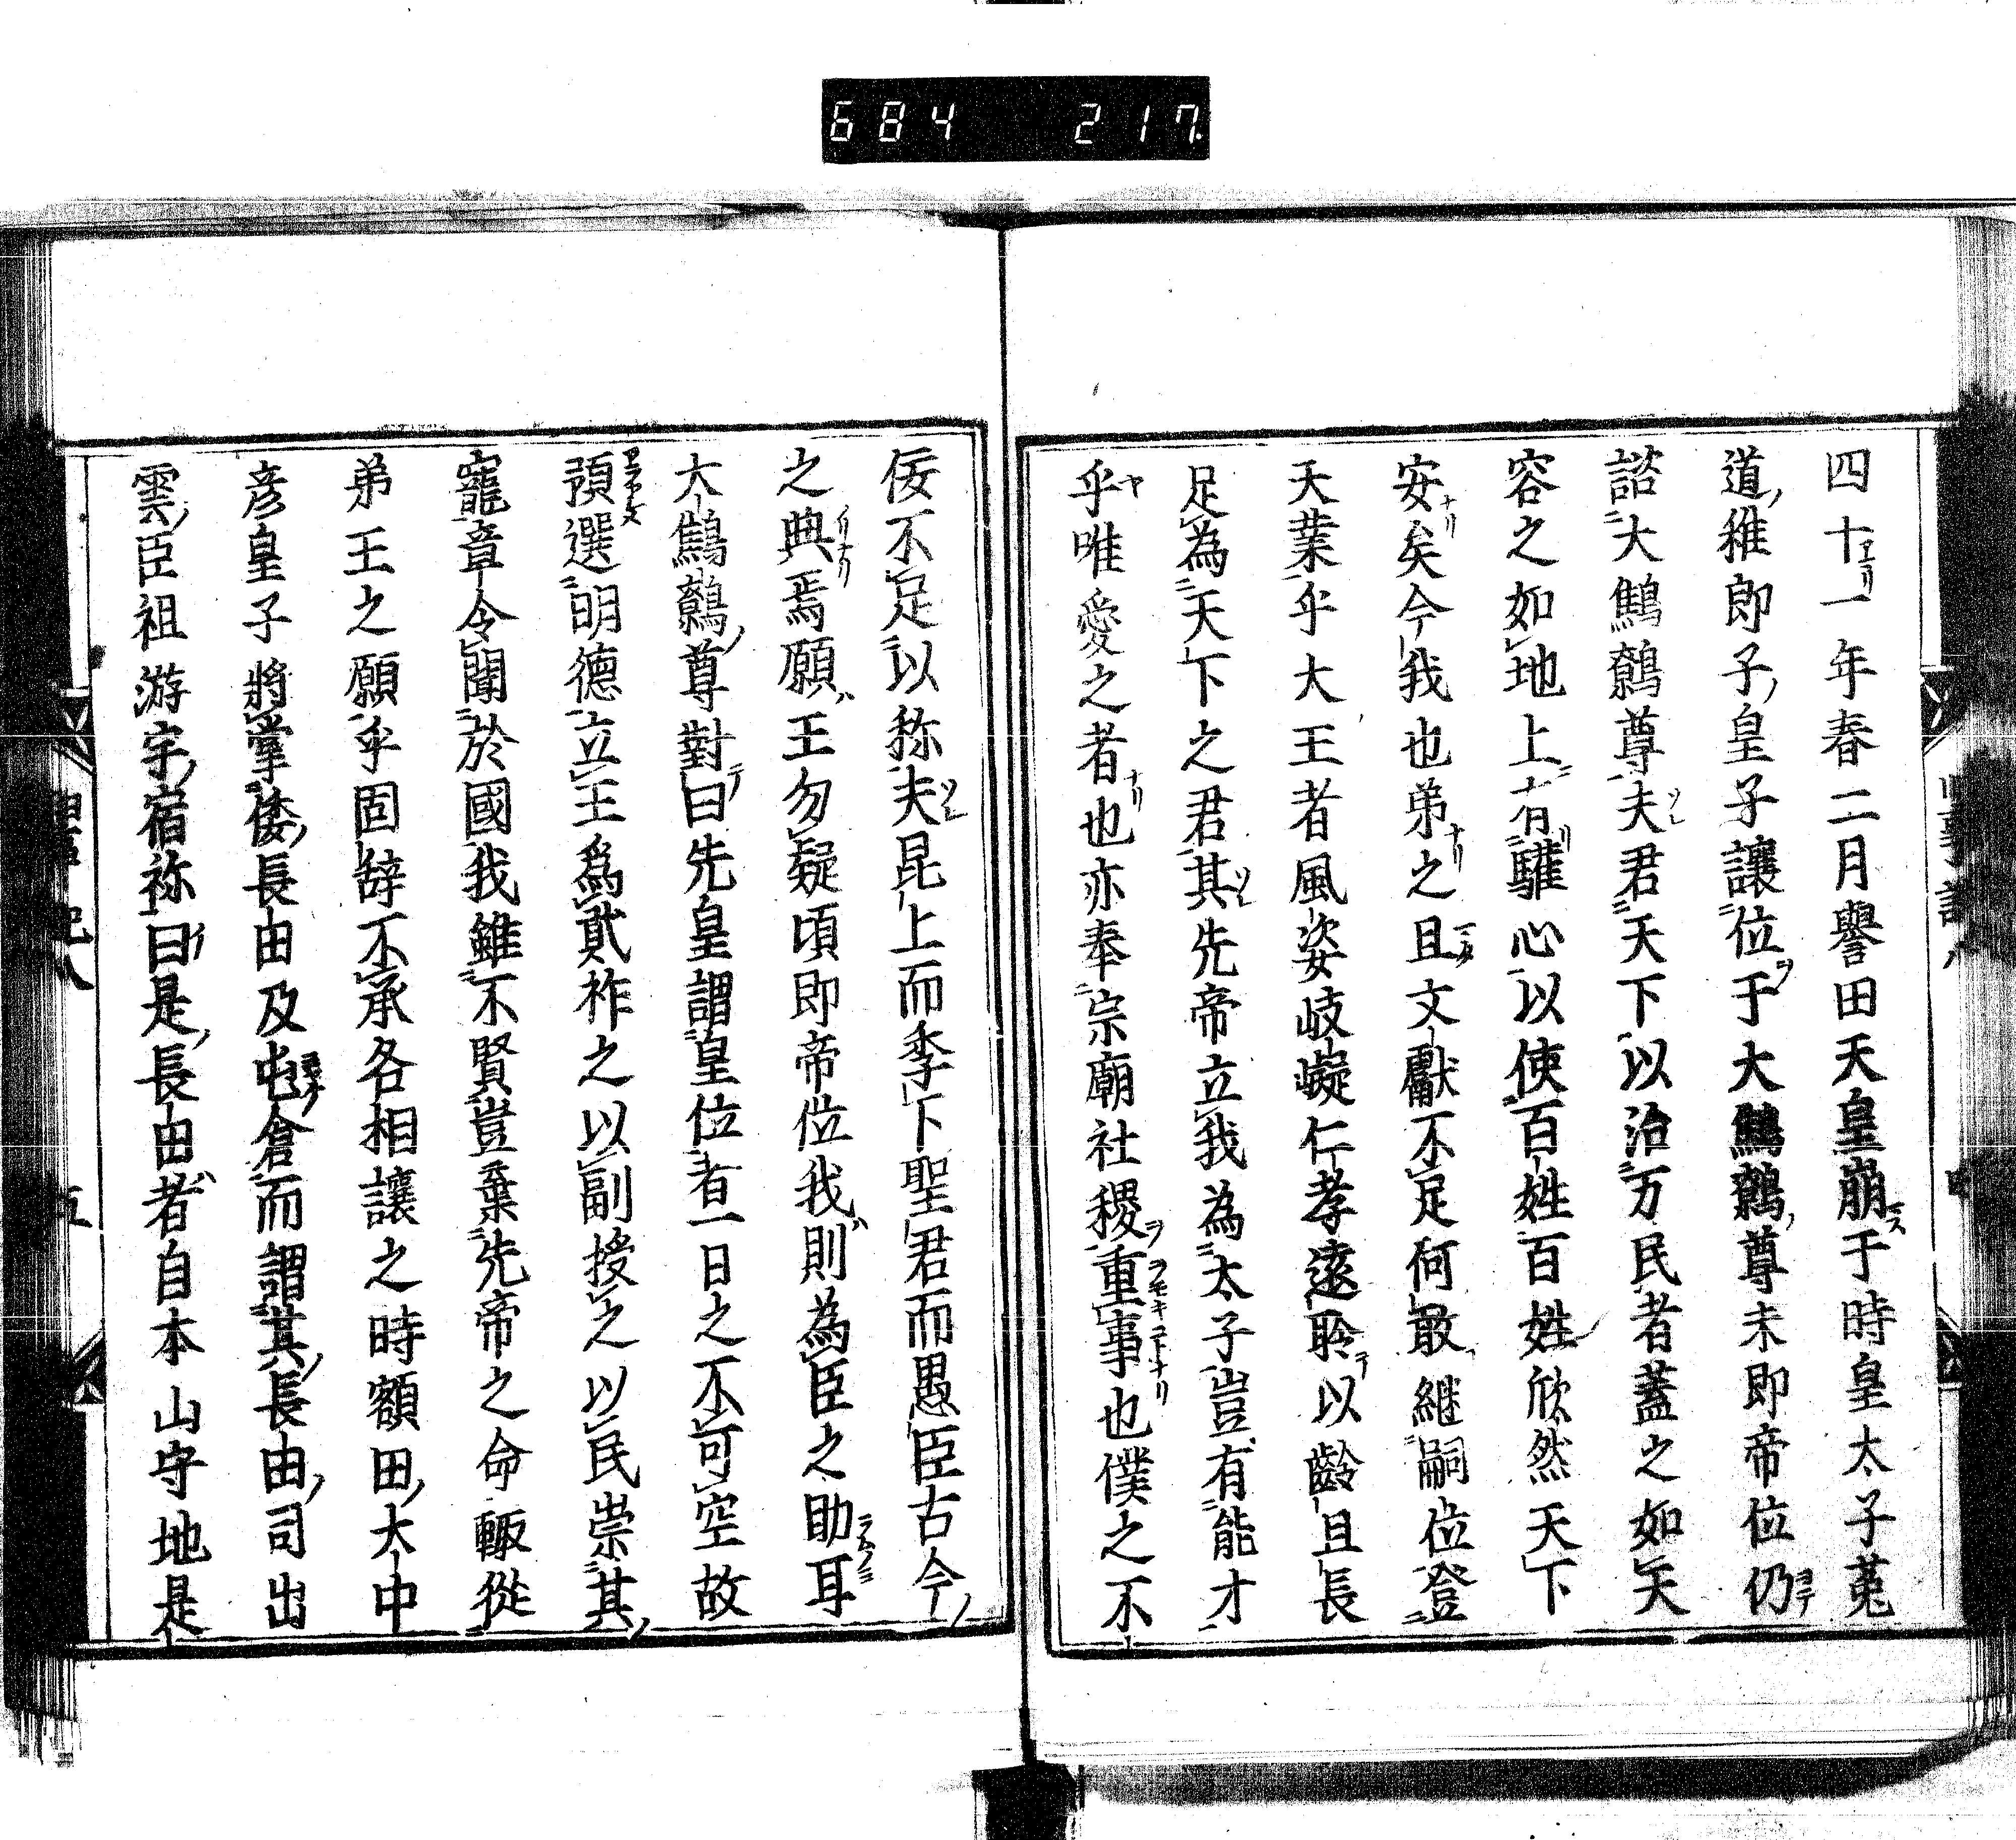 684 217
四十一年春二月譽田天皇崩于時皇太子菟
道稚郎子皇子讓位于大鷦鷯尊未即帝位仍
諮大鷦鷯尊夫君天下以治万民者蓋之如天
容之如地上有驩心以使百姓百姓欣然天下
安矣今我也弟之且文獻不足何敢継嗣位登
天業乎大王者風姿岐嶷仁孝遠聆以齡且長
足為天下之君其先帝立我為太子豈有能才
乎唯愛之者也亦奉宗廟社稷重事也僕之不
佞不足以称夫昆上而季下聖君而愚臣古今
之典焉願王勿疑須即帝位我則為臣之助耳
大鷦鷯尊對曰先皇謂皇位者一日之不可空故
預選明德立王為貳祚之以副授之以民崇其
寵章令聞於國我雖不賢豈棄先帝之命輙從
弟王之願乎固辞不承各相讓之時額田大中
彦皇子將掌倭長田及屯倉而謂其長田司出
雲臣祖游宇宿祢曰是長田者自本山守地是